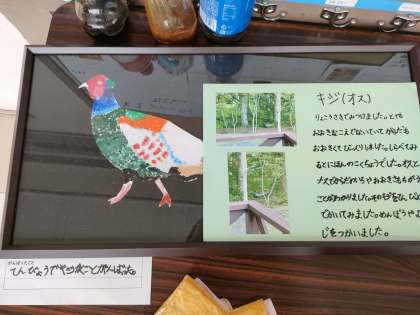 キジ(オス)
りょこうさきでみつけました。とても
おおきなこえでないていて、からだも
おおきくて、びっくりしました。しらべてみ
るとにほんのこくちょうでした。オスと
メスでからだのいろやおおきさもちがう
ことがわかりました。そのキジを、てんびょう
でかいてみました。めんぼうやよ
じをつかいました。
がんばったこと
てんびょうでやったことがんばった。